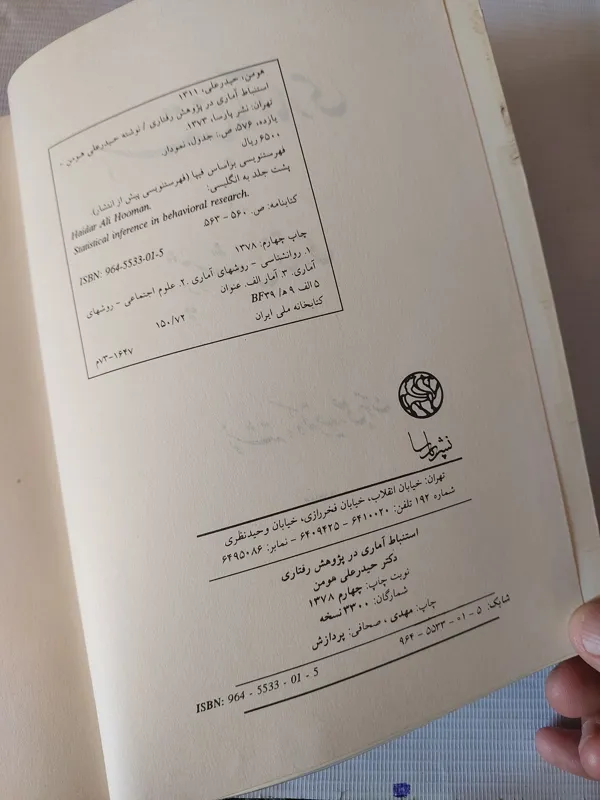 هومن، حیدرعلی، ۱۳۱۱
استنباط آماری در پژوهش رفتاری / نوشته حیدرعلی هومن. -
تهران: نشر پارسا، ۱۳۷۳.
یازده، ۵۷۶ ص.: جدول، نمودار.
۶۵۰۰ ریال
فهرستنویسی براساس فیپا (فهرستنویسی پیش از انتشار).
پشت جلد به انگلیسی:
Haidar Ali Hooman.
Statistical inference in behavioral research.
کتابنامه: ص. ۵۶۰ - ۵۶۳
ISBN: 964-5533-01-5
چاپ چهارم: ۱۳۷۸
۱. روانشناسی - روشهای آماری ۲. علوم اجتماعی - روشهای
آماری. ۳. آمار الف. عنوان
۵ الف ۹ ه/ BF۳۹
۱۵۰/۷۲
کتابخانه ملی ایران
۷۳-۱۶۴۷م
نشر پارسا
تهران: خیابان انقلاب، خیابان فخررازی، خیابان وحیدنظری
شماره ۱۹۲ تلفن: ۶۴۱۰۰۲۰ - ۶۴۰۹۴۲۵ - نمابر: ۶۴۹۵۰۸۶
استنباط آماری در پژوهش رفتاری
دکتر حیدرعلی هومن
نوبت چاپ: چهارم ۱۳۷۸
شمارگان: ۳۳۰۰ نسخه
چاپ: مهدی، صحافی: پردازش
شابک: ۵ - ۰۱ - ۵۵۳۳ - ۹۶۴
ISBN: 964 - 5533 - 01 - 5